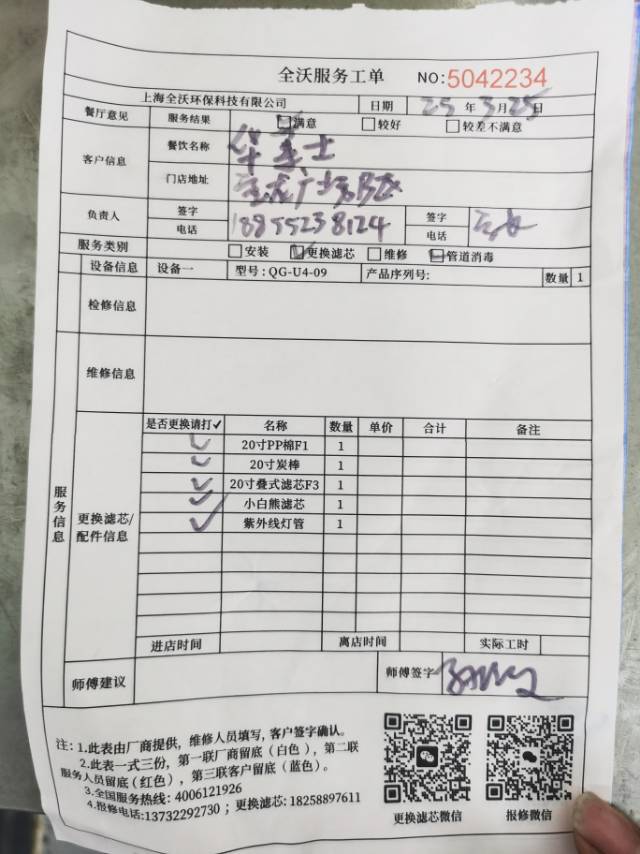 全沃服务工单 NO:5042234
上海全沃环保科技有限公司 日期 25年3月25日
餐厅意见 服务结果 满意 较好 较差不满意
客户信息 餐饮名称 华莱士
门店地址
负责人 签字 签字
电话 18855238124 电话
服务类别 安装 更换滤芯 维修 管道消毒
设备信息 设备一 型号:QG-U4-09 产品序列号: 数量 1
检修信息
维修信息
服务信息
更换滤芯/配件信息
是否更换请打✓ 名称 数量 单价 合计 备注
✓ 20寸PP棉F1 1
✓ 20寸炭棒 1
✓ 20寸叠式滤芯F3 1
✓ 小白熊滤芯 1
✓ 紫外线灯管 1
进店时间 离店时间 实际工时
师傅建议 师傅签字
注:1.此表由厂商提供,维修人员填写,客户签字确认。
2.此表一式三份,第一联厂商留底(白色),第二联
服务人员留底(红色),第三联客户留底(蓝色)。
3.全国服务热线:4006121926
4.报修电话:13732292730;更换滤芯:18258897611
更换滤芯微信 报修微信